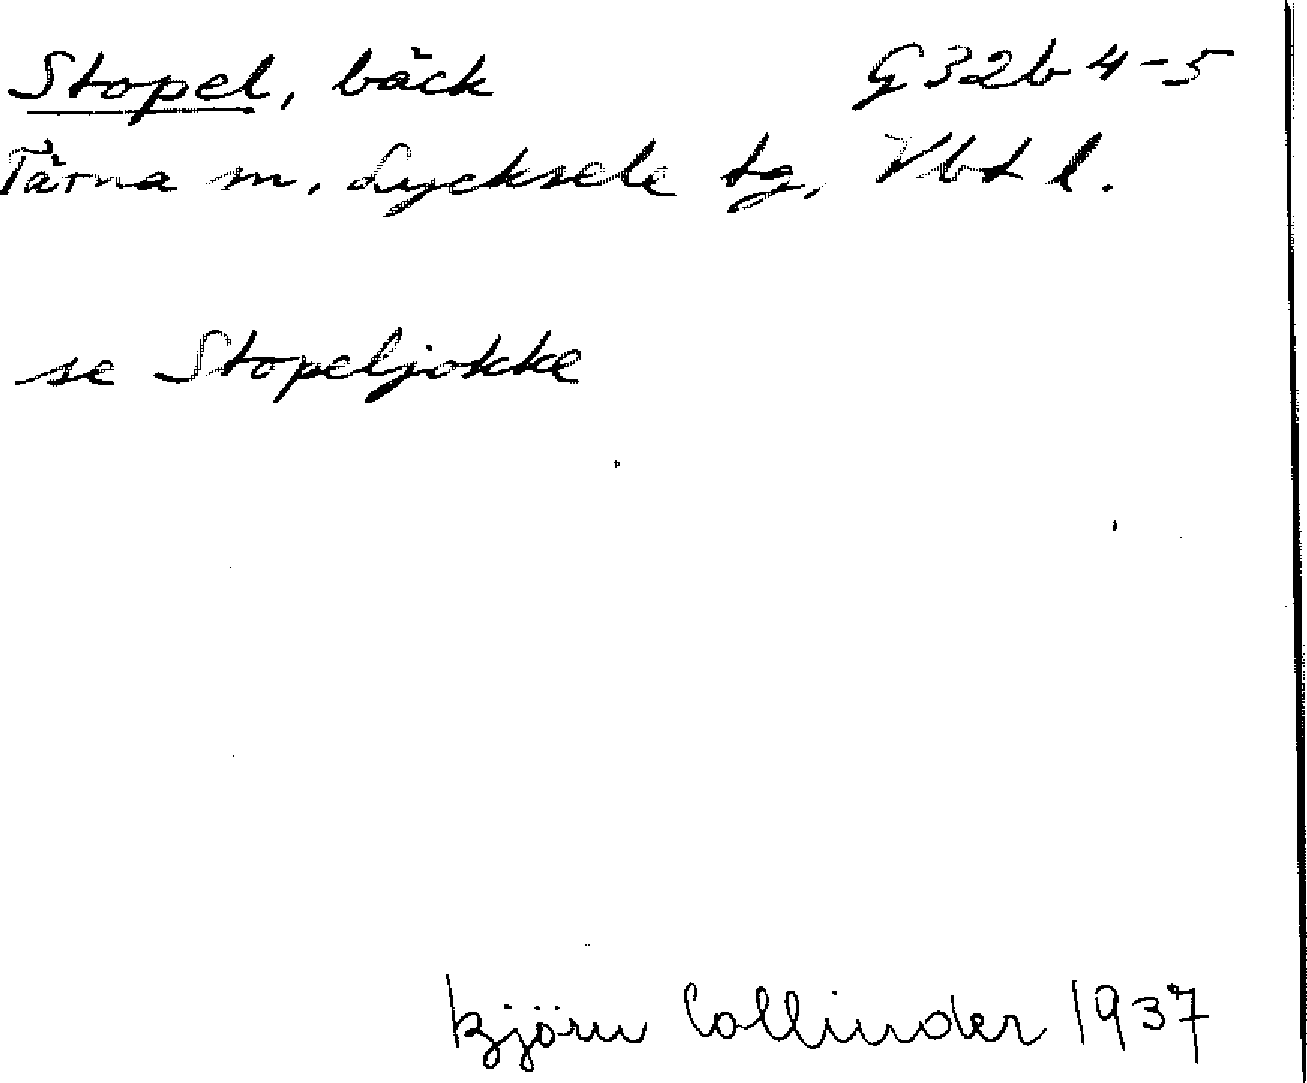 Stopel, bäck G32b4-5
Tärna sn, Lycksele tg, Vbt l.
se Stopeljokke
Björn Collinder 1937